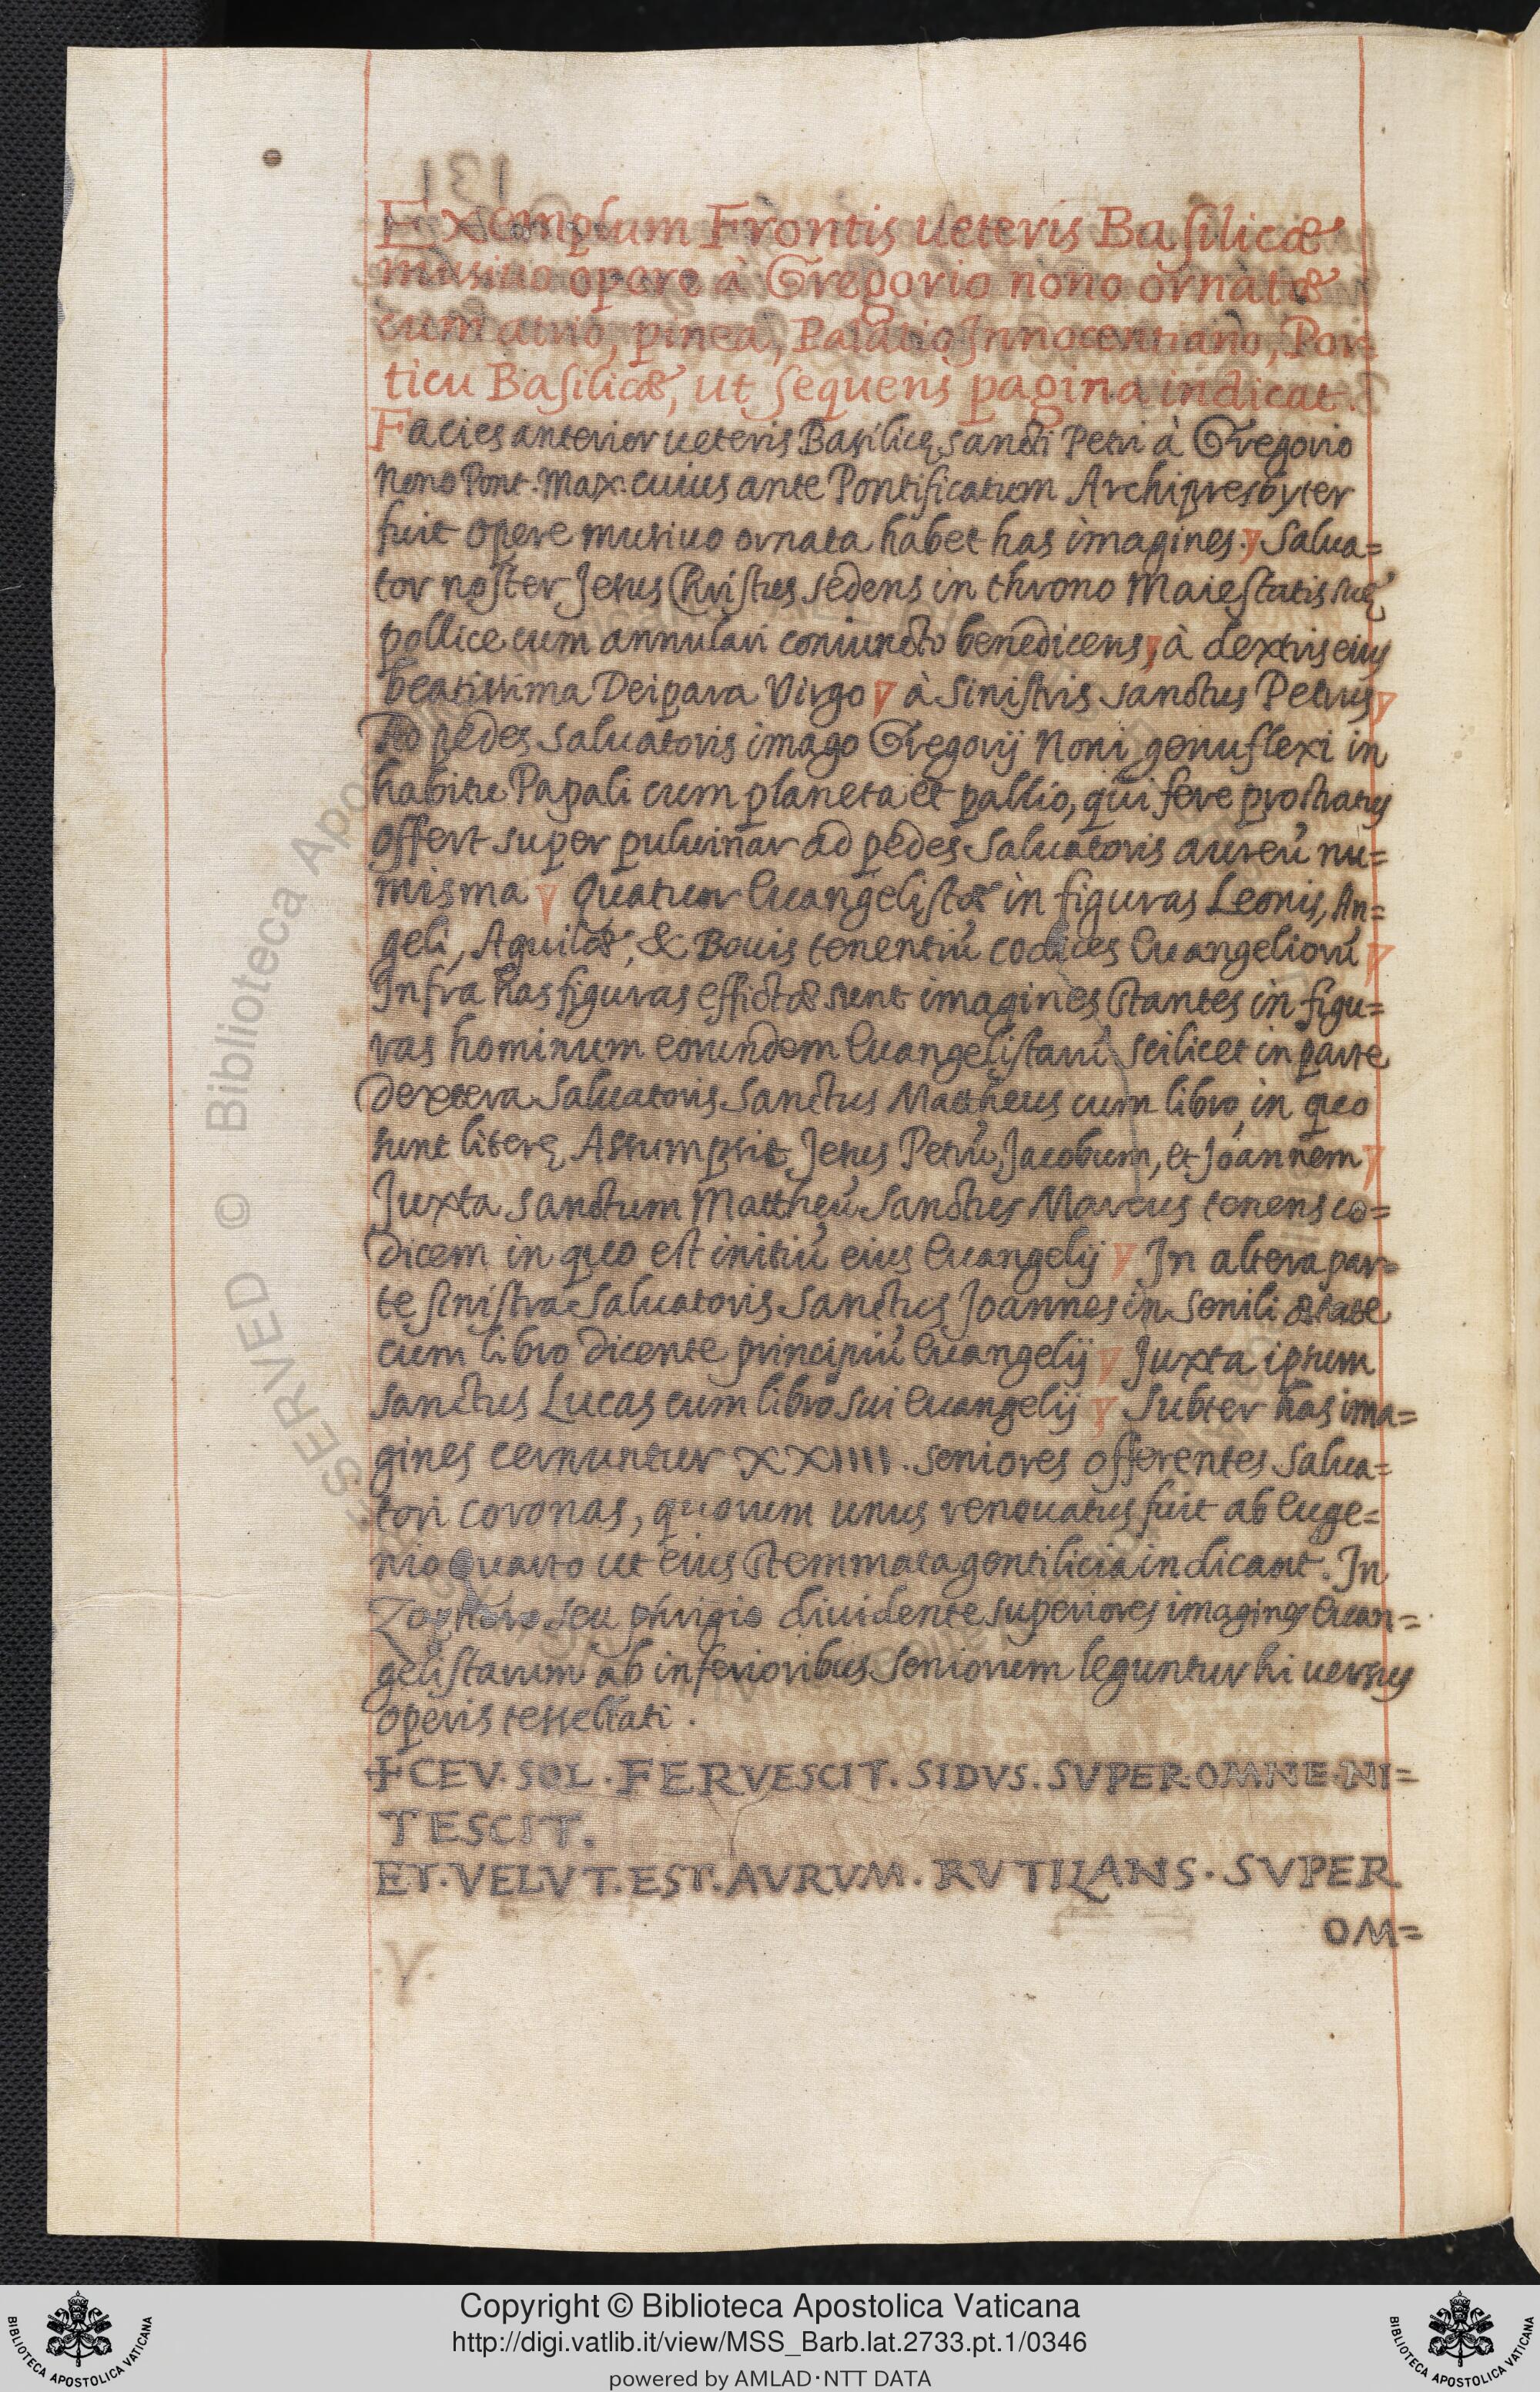 Exemplum Frontis ueteris Basilicæ
musiuo opere à Gregorio nono ornatæ
cum atrio, pinea, Palatio Innocentiano, Por=
ticu Basilicæ, ut sequens pagina indicat.
Facies anterior ueteris Basilicę sancti Petri à Gregorio
Nono Pont. Max. cuius ante Pontificatum Archipresbyter
fuit opere musiuo ornata habet has imagines. Salua=
tor noster Jesus Christus sedens in throno Maiestatis suę
pollice cum annulari coniuncto benedicens, à dextris eius
beatissima Deipara Virgo à sinistris sanctus Petrus
Ad pedes saluatoris imago Gregorij Noni genuflexi in
habitu Papali cum planeta et pallio, qui fere prostratus
offert super puluinar ad pedes saluatoris aureũ nu=
misma Quatuor Euangelistæ in figuras Leonis, An=
geli, Aquilæ, & Bouis tenentiũ codices Euangeliorũ
Infra has figuras effictæ sunt imagines stantes in figu=
ras hominum eorundem Euangelistarũ scilicet in parte
dextera saluatoris sanctus Mattheus cum libro, in quo
sunt literę, Assumpsit Jesus Petrũ, Jacobum, et Joannem
Juxta sanctum Mattheũ sanctus Marcus tenens co=
dicem in quo est initiũ eius Euangelij In altera par=
te sinistra saluatoris sanctus Joannes in senili ætate
cum libro dicente principiũ Euangelij Juxta ipsum
sanctus Lucas cum libro sui Euangelij subter has ima=
gines cernuntur XXIIII. seniores offerentes Salua=
tori coronas, quorum unus renouatus fuit ab Euge=
nio Quarto ut eius stemmata gentilicia indicant. In
Zophoro seu phrigio diuidente superiores imagines Euan=
gelistarum ab inferioribus seniorum leguntur hi uersus
operis tessellati.
+CEV.SOL.FERVESCIT.SIDVS.SVPER.OMNE.NI=
TESCIT.
ET.VELVT.EST.AVRVM.RVTILANS.SVPER
OM=
.V.
© Biblioteca Apo
Copyright © Biblioteca Apostolica Vaticana
http://digi.vatlib.it/view/MSS_Barb.lat.2733.pt.1/0346
powered by AMLAD·NTT DATA
BIBLIOTECA APOSTOLICA VATICANA
BIBLIOTECA APOSTOLICA VATICANA